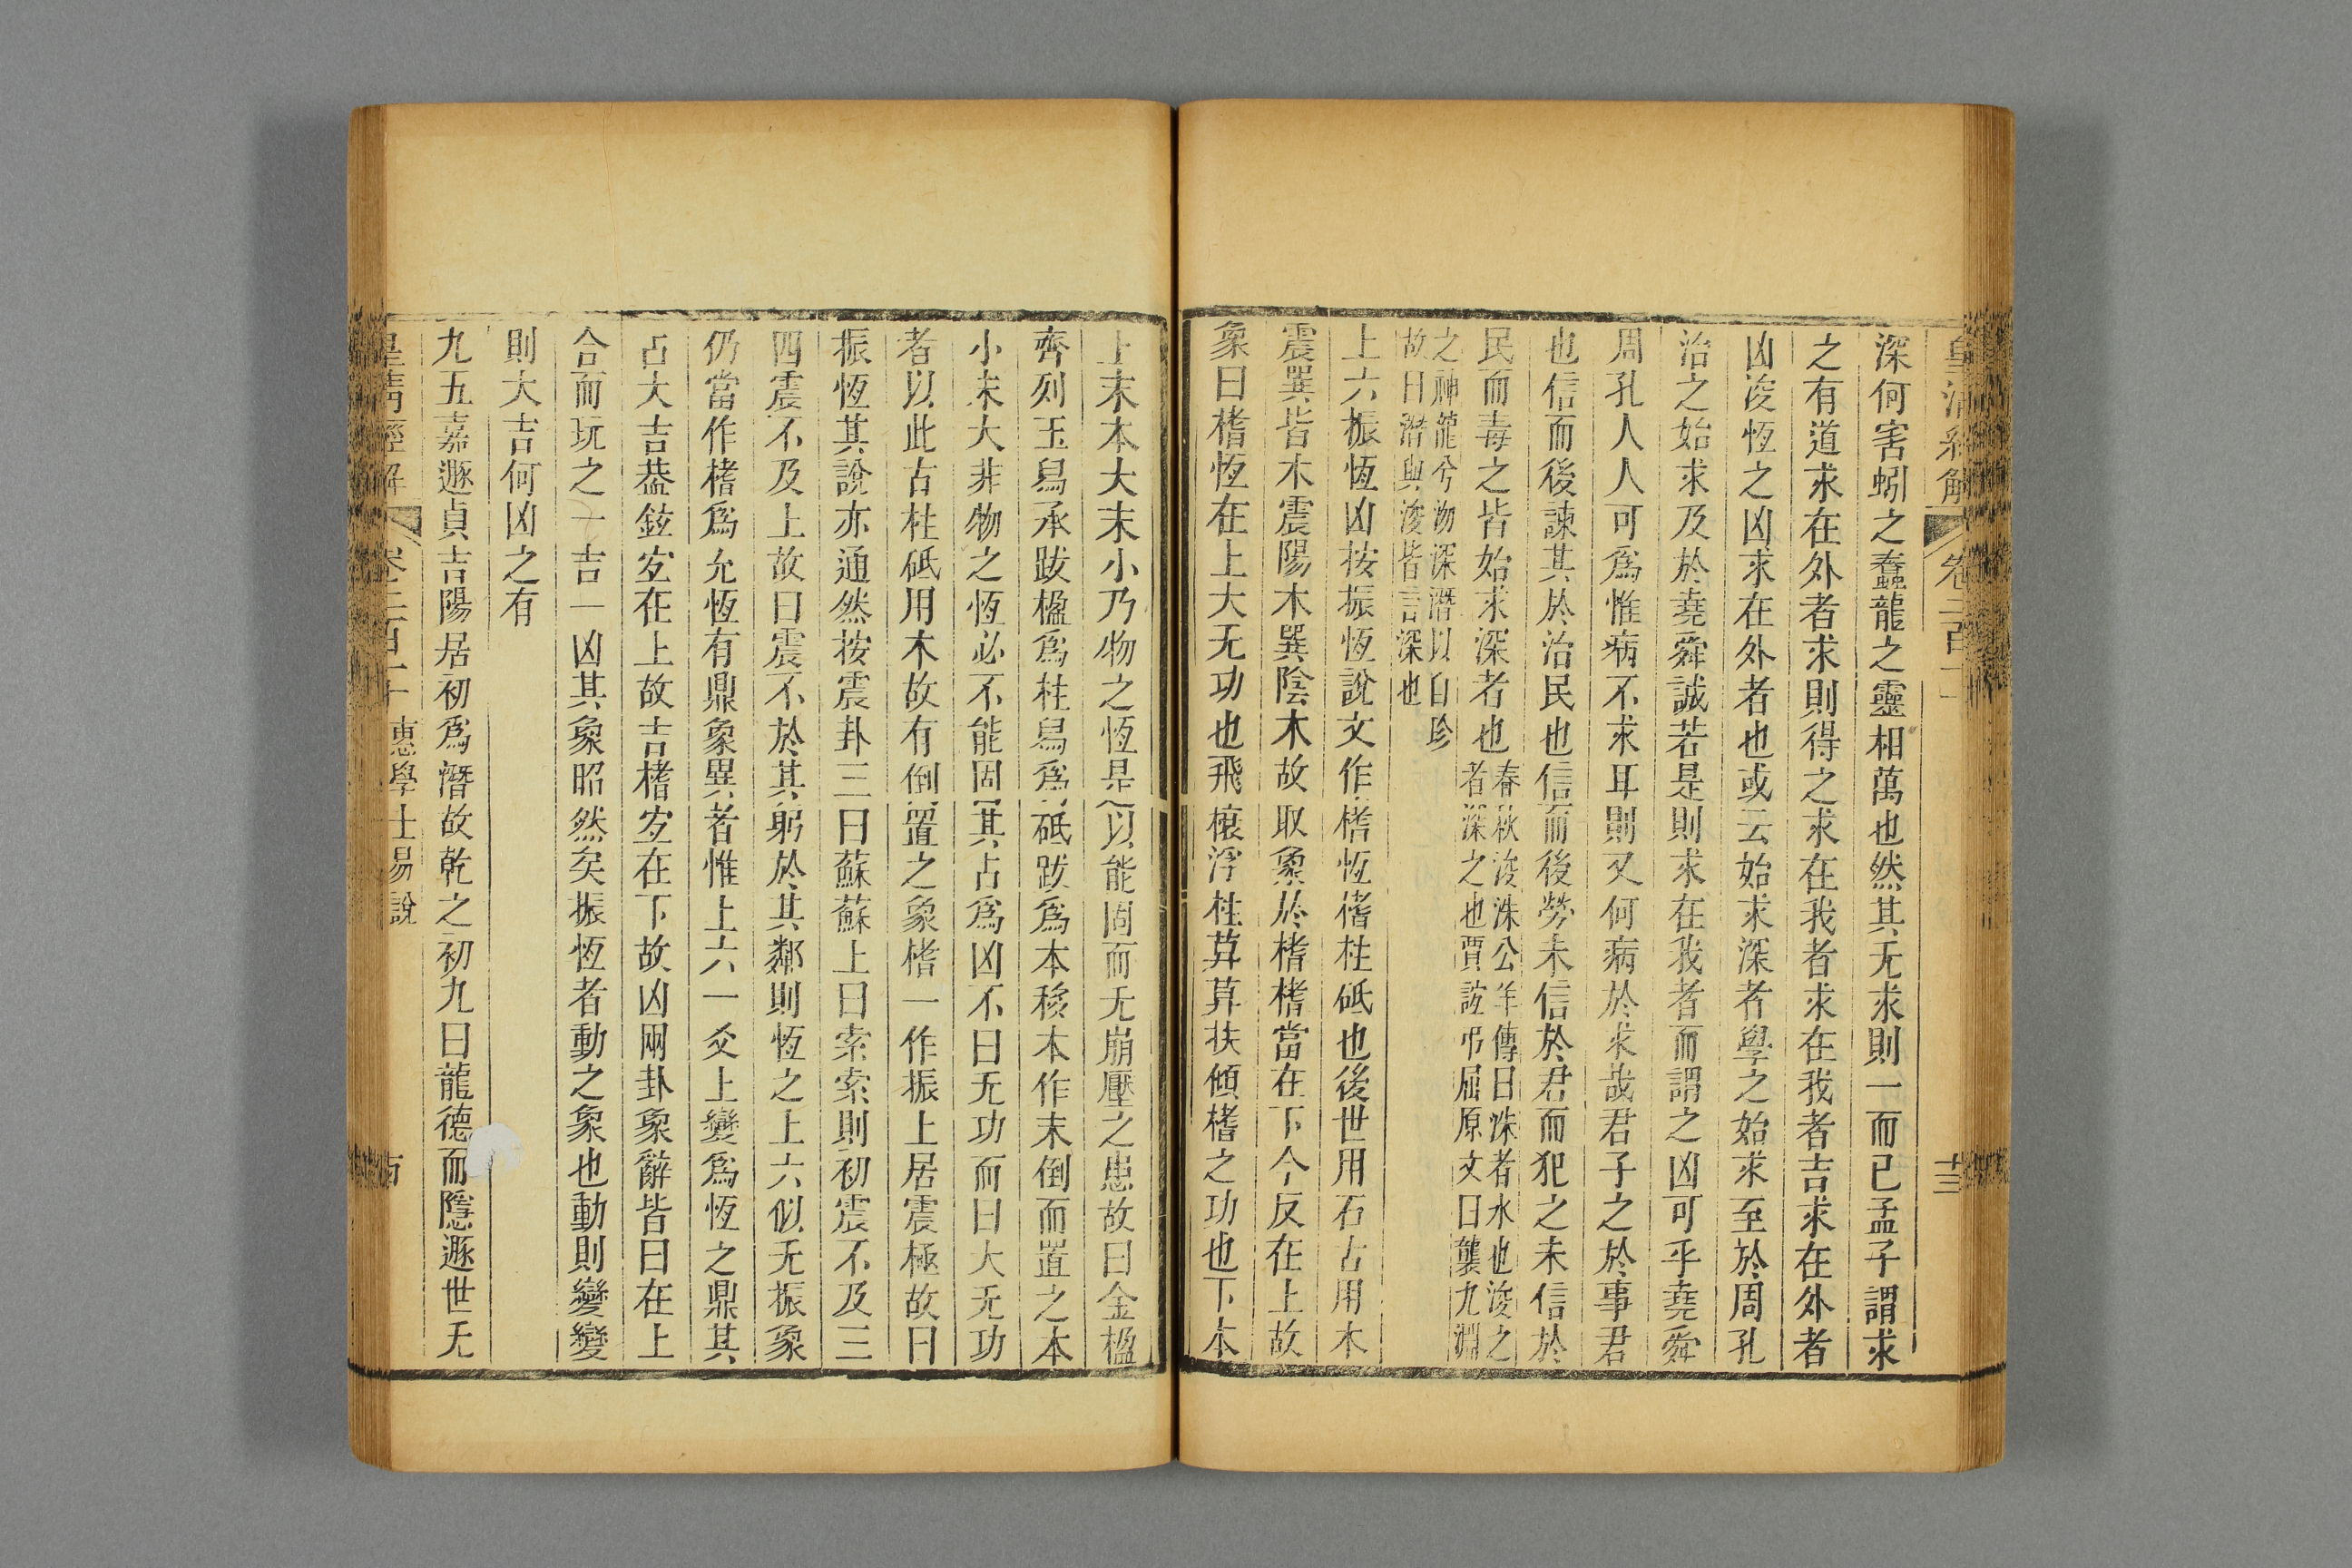 皇清經解 卷二百十 十三
深何害蚓之蠢龍之靈相萬也然其无求則一而已孟子謂求
之有道求在外者求則得之求在我者求在我者吉求在外者
凶浚恆之凶求在外者也或云始求深者學之始求至於周孔
治之始求及於堯舜誠若是則求在我者而謂之凶可乎堯舜
周孔人人可爲惟病不求耳則又何病於求哉君子之於事君
也信而後諫其於治民也信而後勞未信於君而犯之未信於
民而毒之皆始求深者也
春秋浚洙公羊傳曰洙者水也浚之
者深之也賈誼弔屈原文曰襲九淵
之神龍兮沕深潛以自珍
故曰潛與浚皆言深也
上六振恆凶按振恆說文作榰恆榰柱砥也後世用石古用木
震巽皆木震陽木巽陰木故取象於榰榰當在下今反在上故
象曰榰恆在上大无功也飛櫰浮柱茻茻扶傾榰之功也下本
上末本大末小乃物之恆是以能固而无崩壓之患故曰金楹
齊列玉舃承跋楹爲柱舃爲砥跋爲本移本作末倒而置之本
小末大非物之恆必不能固其占爲凶不曰无功而曰大无功
者以此古柱砥用木故有倒置之象榰一作振上居震極故曰
振恆其說亦通然按震卦三曰蘇蘇上曰索索則初震不及三
四震不及上故曰震不於其躬於其鄰則恆之上六似无振象
仍當作榰爲允恆有鼎象異者惟上六一爻上變爲恆之鼎其
占大吉葢鉉宐在上故吉榰宐在下故凶兩卦象辭皆曰在上
合而玩之一吉一凶其象昭然矣振恆者動之象也動則變變
則大吉何凶之有
九五嘉遯貞吉陽居初爲潛故乾之初九曰龍德而隱遯世无
皇清經解 卷二百十 惠學士易說